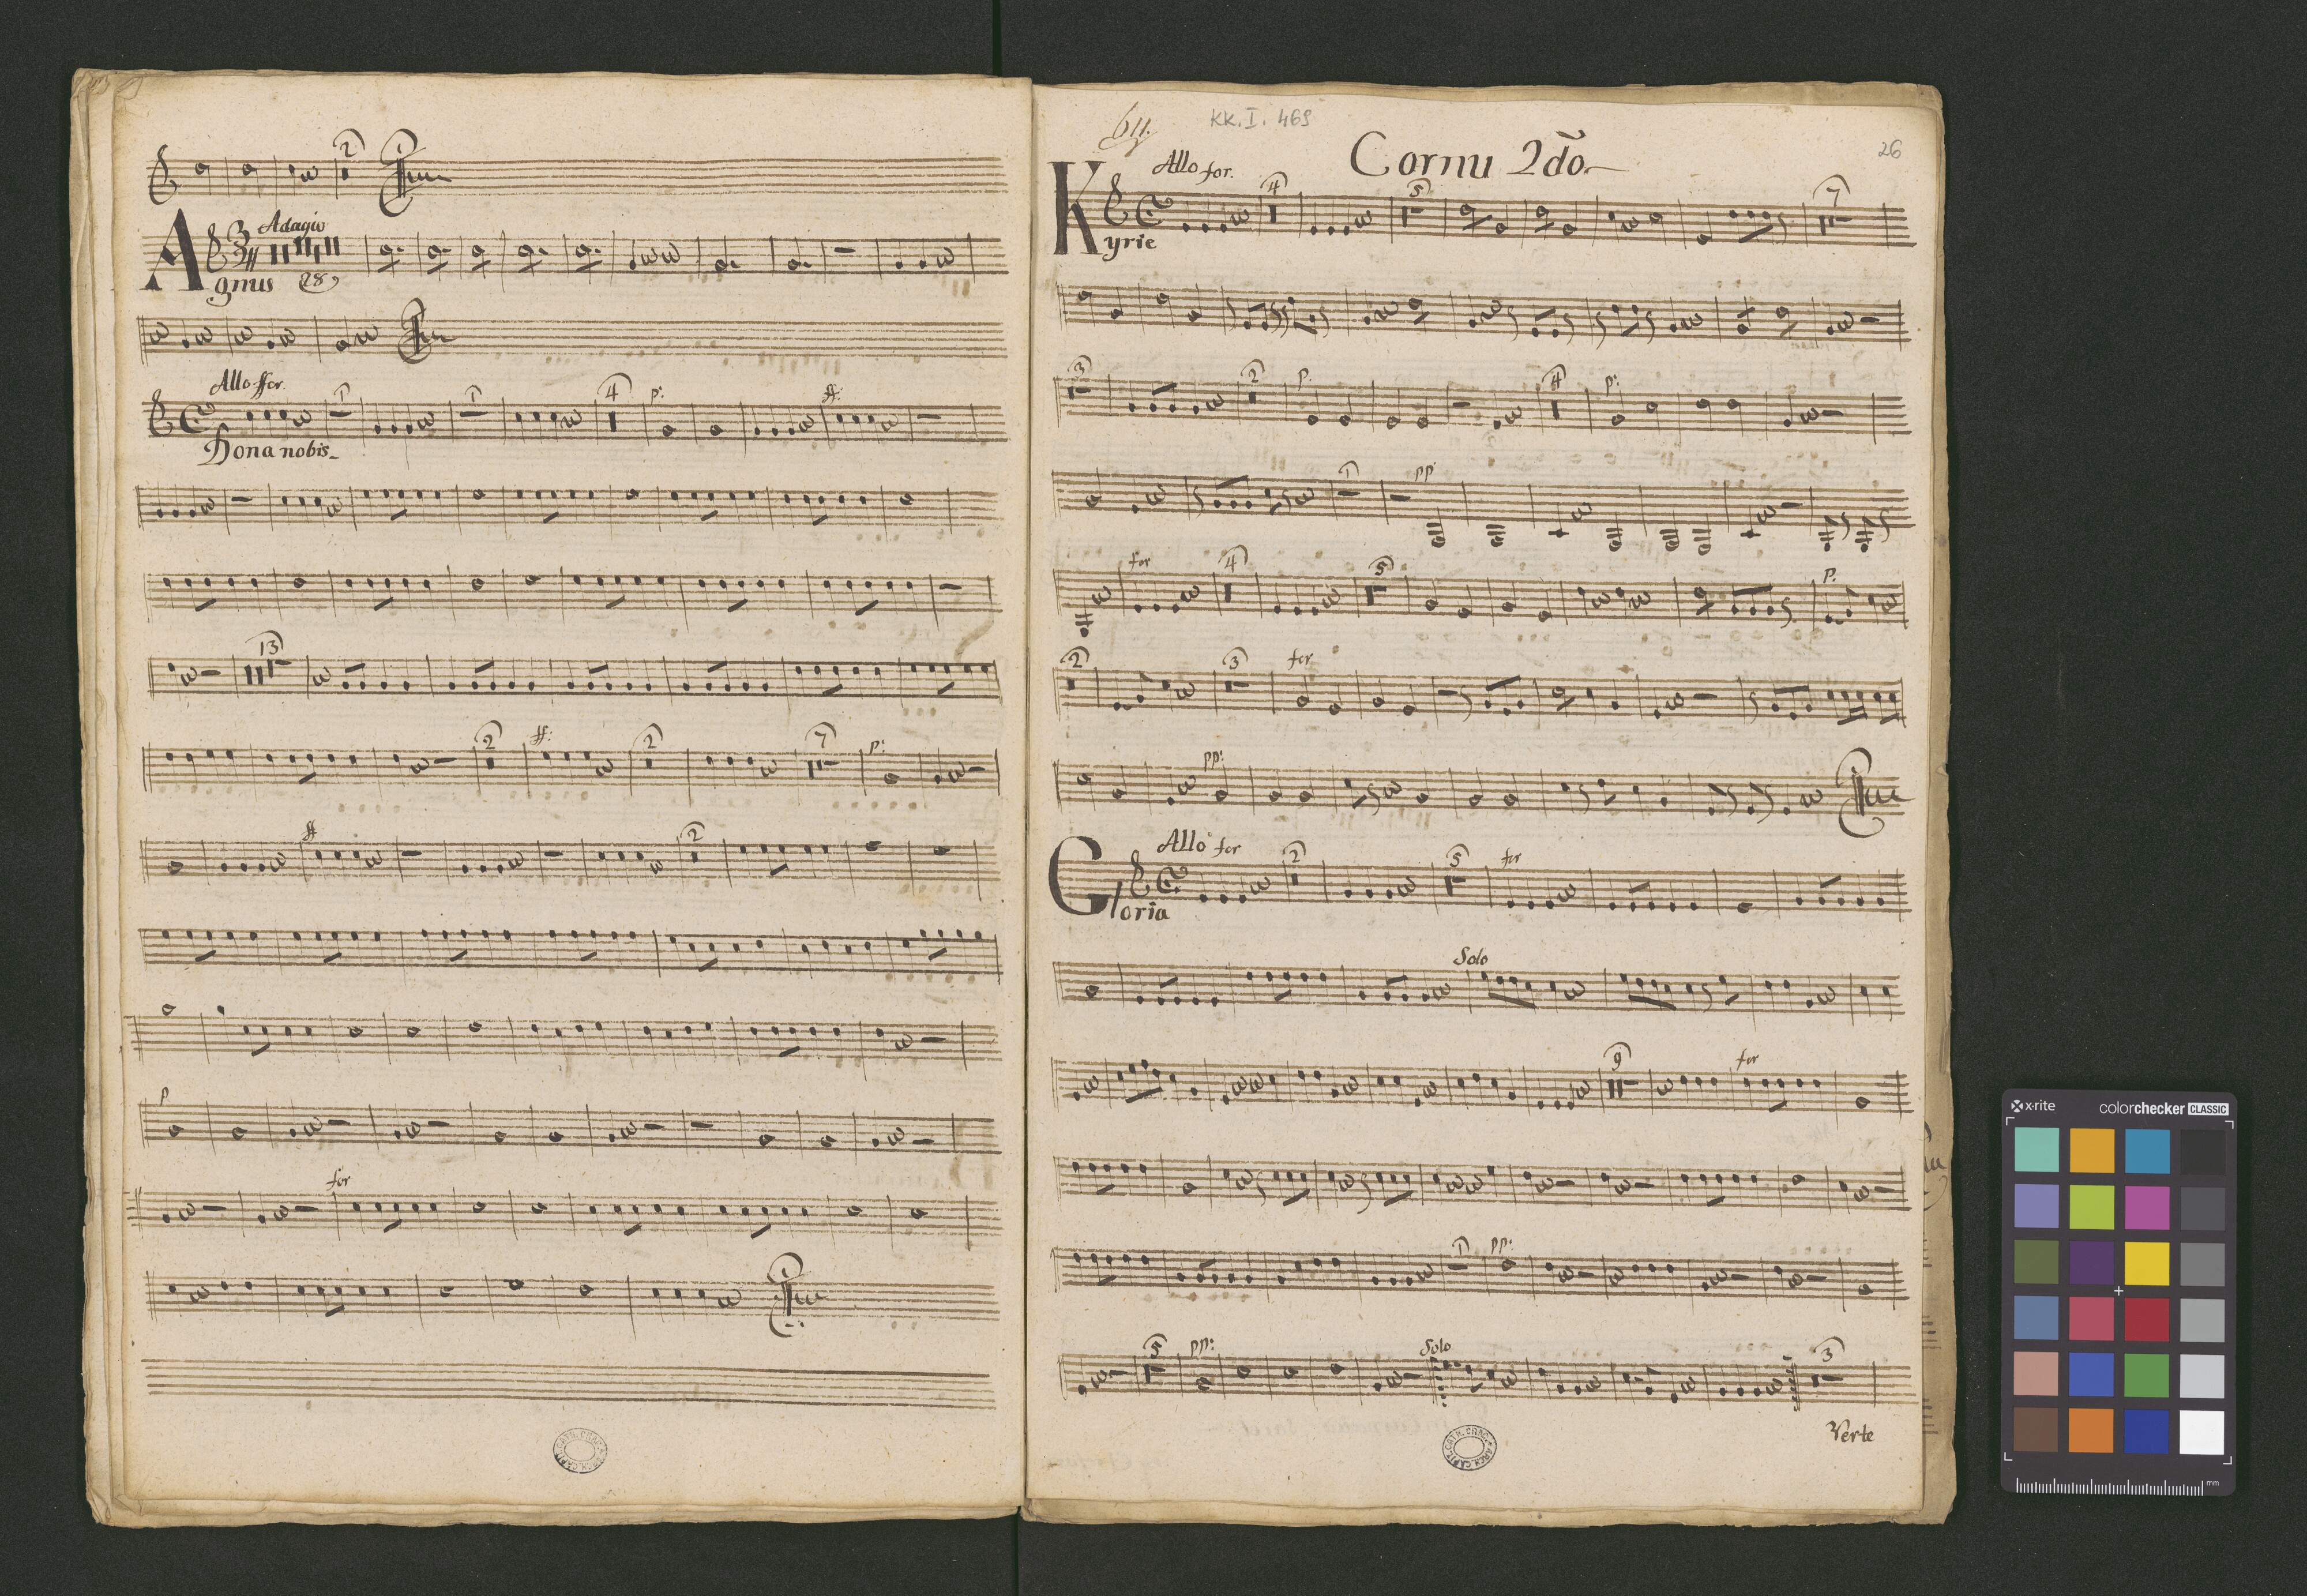 2
Adagio
3
Agnus 28
Allo ffor.
1 1 4 p: ff:
Dona nobis
13
2 ff: 2 7 p:
ff 2
p
for
611.
KK. I. 469
26
Cornu 2do.
Allo for. 4 5 7
Kyrie
3 2 p. 4 p:
1 pp
for 4 5 p.
2 3 for
pp:
Allo for 2 5 for
Gloria
Solo
9 for
1 pp:
5 pp: Solo 3
Verte
x-rite colorchecker CLASSIC
mm